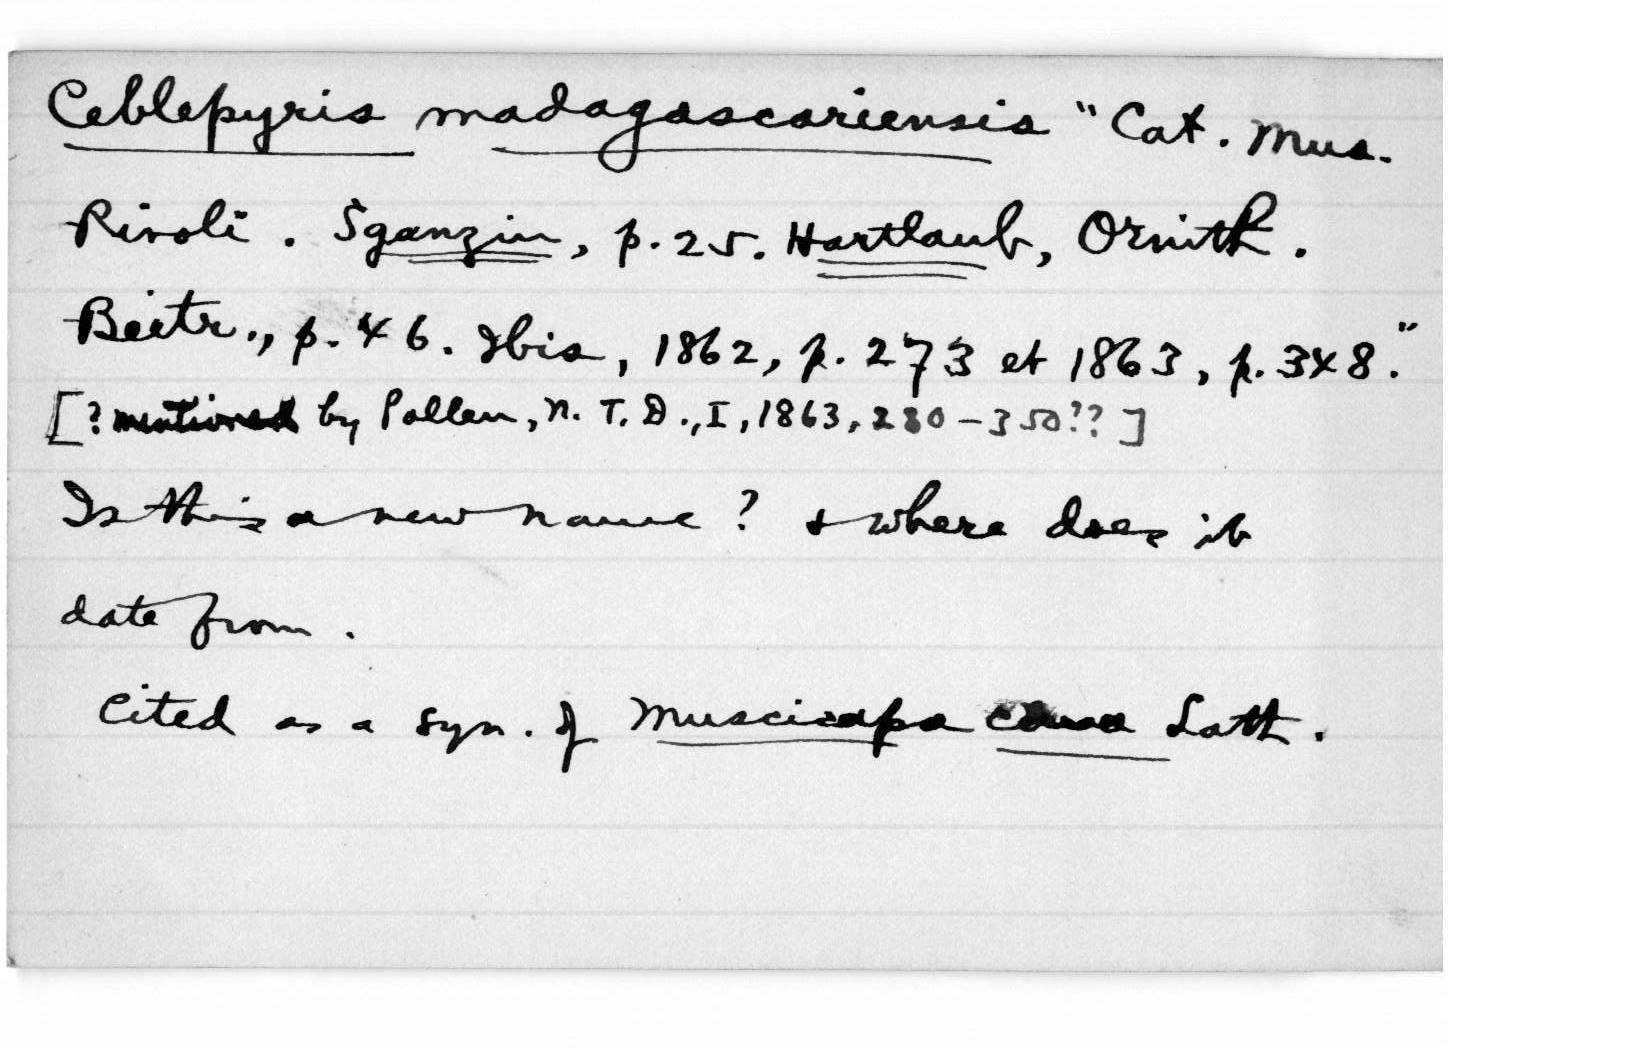 Ceblepyris madagascariensis "Cat. Mus.
Rivoli. Sganzin, p. 25. Hartlaub, Ornith.
Beitr., p. 46. Ibis, 1862, p. 273 et 1863, p. 348."
[? mentioned by Pollen, N. T. D., I, 1863, 280-350??]
Is this a new name? & where does it
date from.
Cited as a syn. of Muscicapa cana Lath.